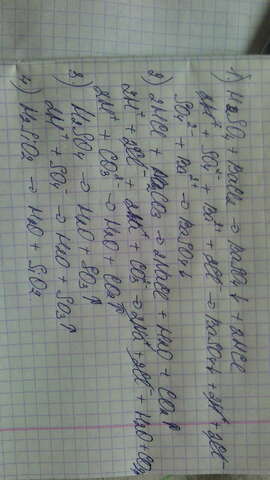 1) H2SO4 + BaCl2 → BaSO4↓ + 2HCl
2H⁺ + SO4²⁻ + Ba²⁺ + 2Cl⁻ → BaSO4↓ + 2H⁺ + 2Cl⁻
SO4²⁻ + Ba²⁺ → BaSO4↓
2) 2HCl + Na2CO3 → 2NaCl + H2O + CO2↑
2H⁺ + 2Cl⁻ + 2Na⁺ + CO3²⁻ → 2Na⁺ + 2Cl⁻ + H2O + CO2↑
2H⁺ + CO3²⁻ → H2O + CO2↑
3) H2SO4 → H2O + SO3↑
2H⁺ + SO4 → H2O + SO3↑
4) H2SiO3 → H2O + SiO2